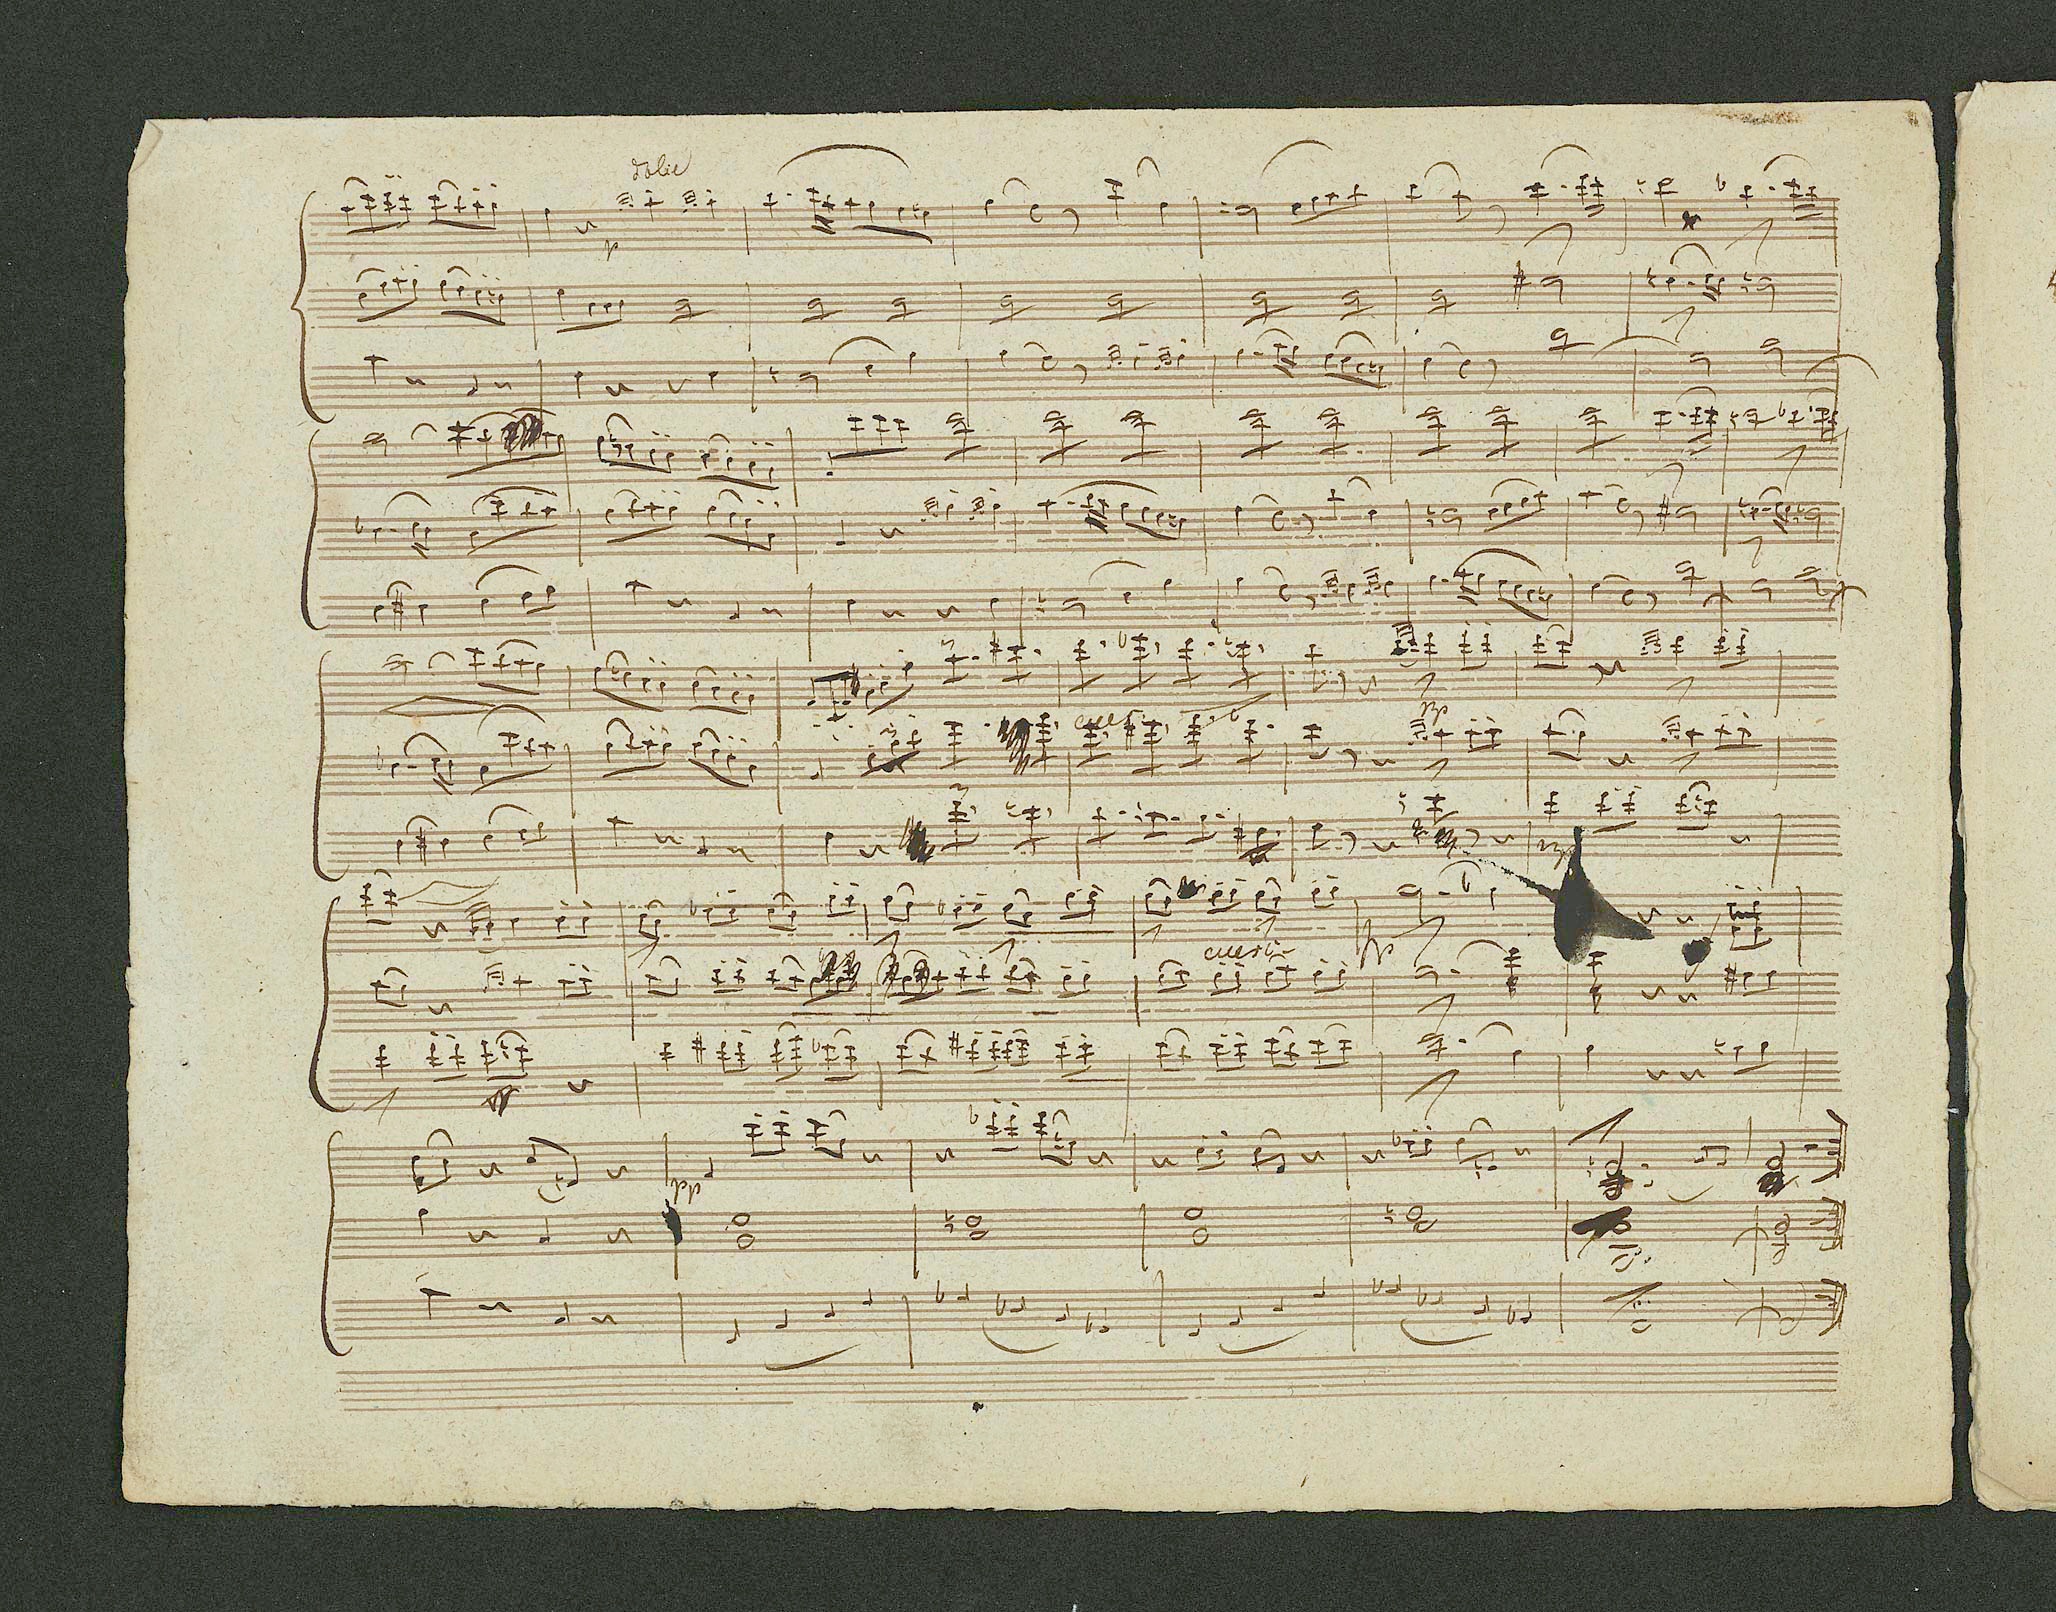 dolce
p
cresc
pp
cresc
fp
pp